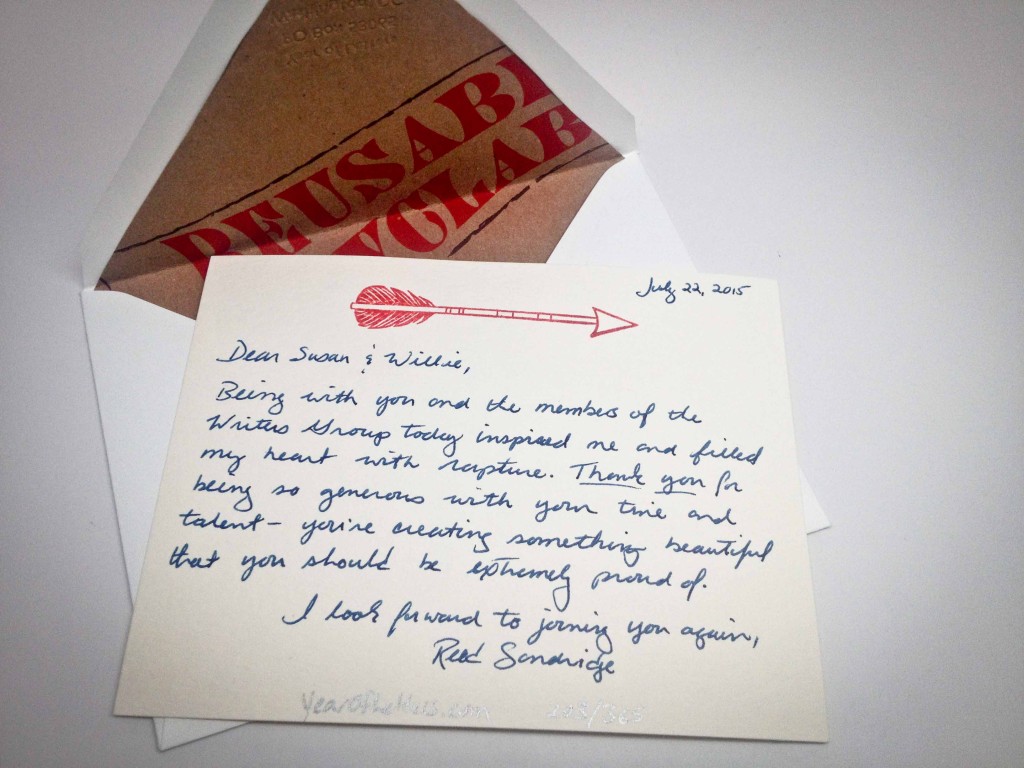 PO BOX
REUSABL
YCLAB
July 22, 2015
Dear Susan & Willie,
Being with you and the members of the
Writers Group today inspired me and filled
my heart with rapture. Thank you for
being so generous with your time and
talent - you're creating something beautiful
that you should be extremely proud of.
I look forward to joining you again,
Reed Sandridge
203/365